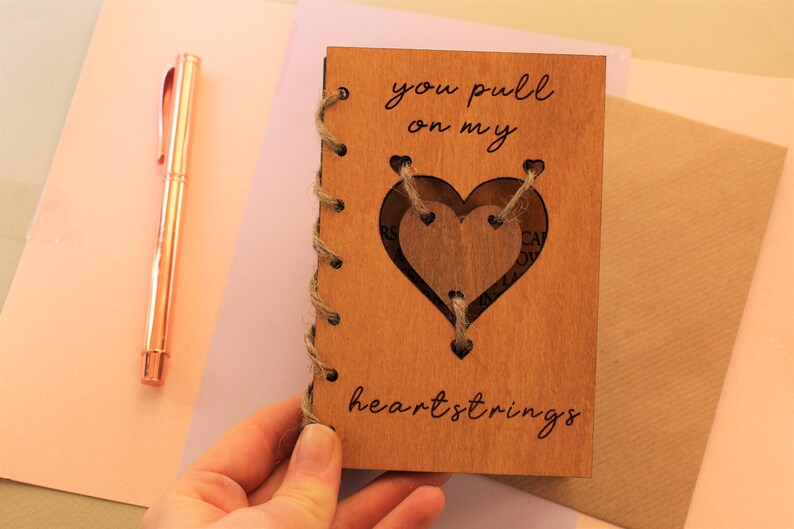 you pull
on my
heartstrings